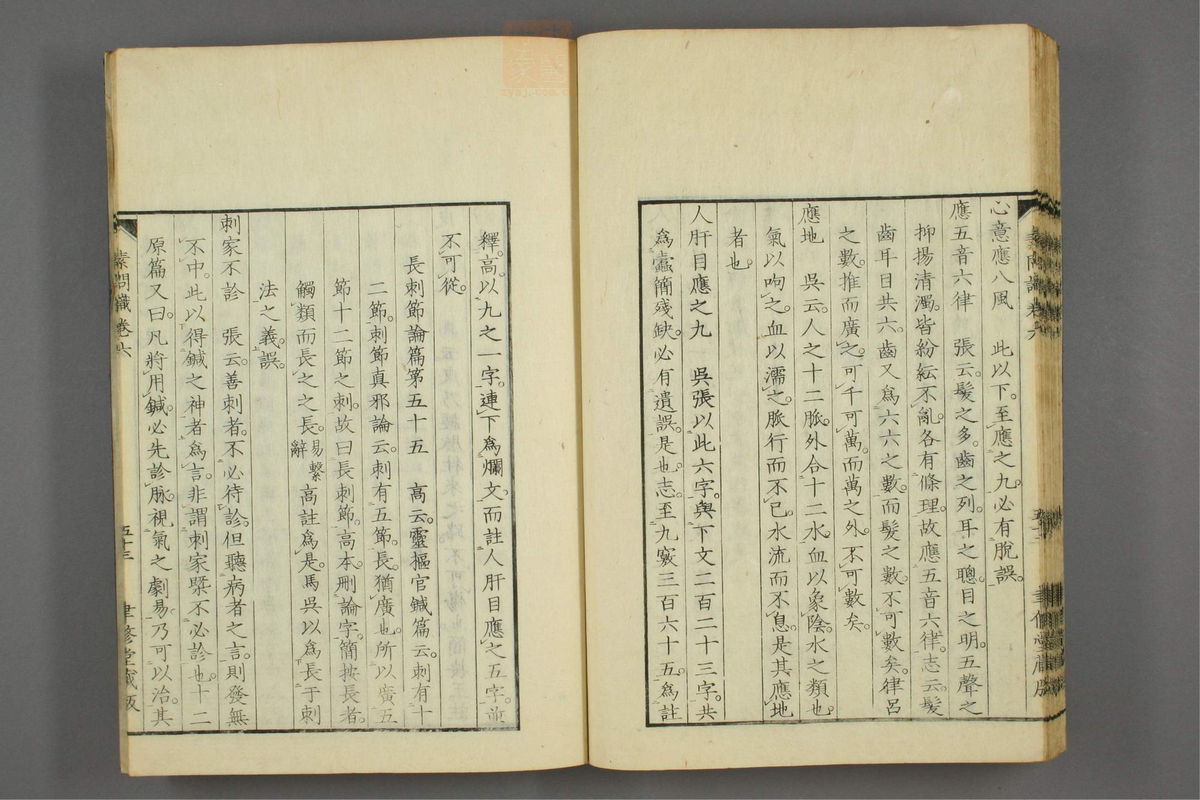 心意應八風　此以下至應之九必有脫誤
應五音六律　張云髮之多齒之列耳之聰目之明五聲之
抑揚清濁皆紛紜不亂各有條理故應五音六律志云髮
齒耳目共六齒又爲六六之數而髮之數不可數矣律呂
之數推而廣之可千可萬而萬之外不可數矣
應地　吳云人之十二脈外合十二水血以象陰水之類也
氣以呴之血以濡之脈行而不已水流而不息是其應地
者也
人肝目應之九　吳張以此六字與下文二百二十三字共
爲蠹簡殘缺必有遺誤是也志至九竅三百六十五爲註
釋高以九之一字連下爲爛文而註人肝目應之五字並
不可從
長刺節論篇第五十五　高云靈樞官鍼篇云刺有十
二節刺節真邪論云刺有五節長猶廣也所以廣五
節十二節之刺故曰長刺節高本刪論字簡按長者
觸類而長之之長易繫辭高註爲是馬吳以爲長于刺
法之義誤
刺家不診　張云善刺者不必待診但聽病者之言則發無
不中此以得鍼之神者爲言非謂刺家槩不必診也十二
原篇又曰凡將用鍼必先診脈視氣之劇易乃可以治其
素問識卷六
五十三
聿修堂藏版